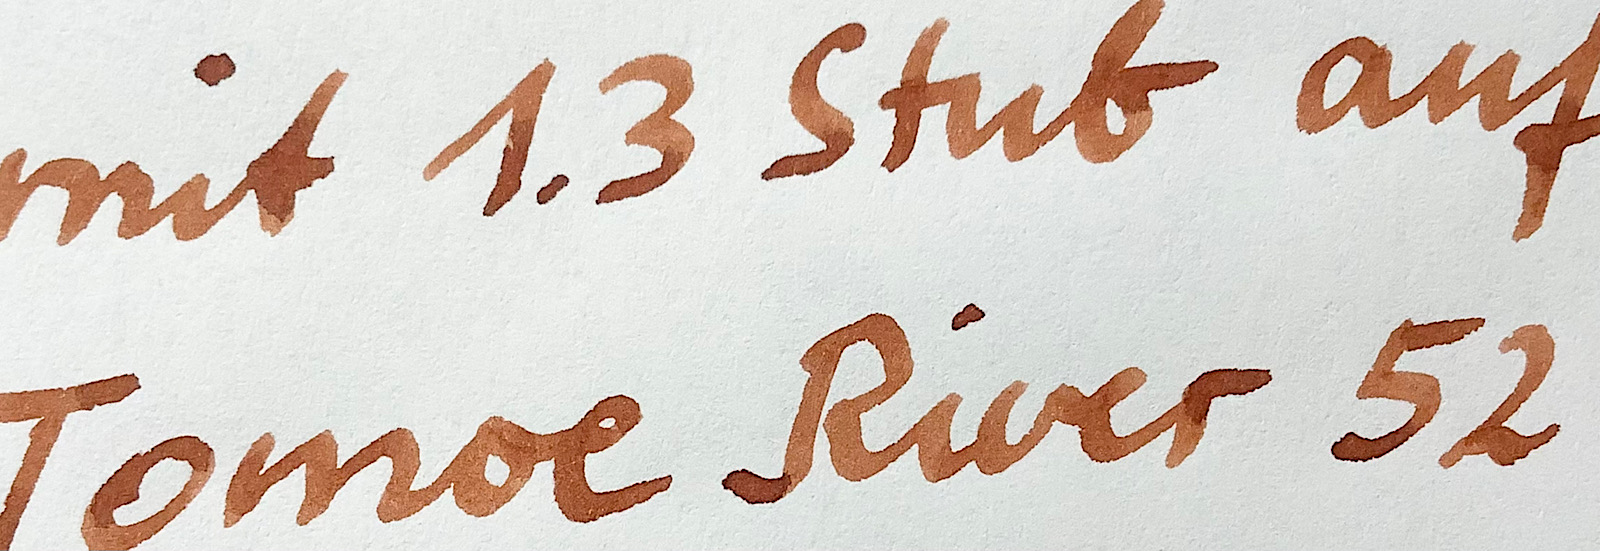 mit 1.3 Stub auf
Tomoe River 52